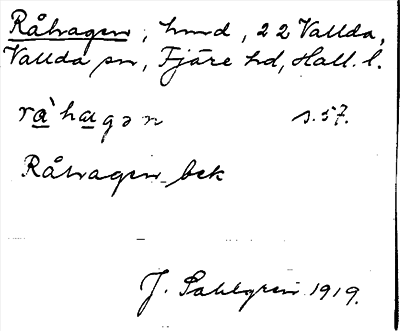 Råhagen, hmd, 22 Vallda,
Vallda sn, Fjäre hd, Hall. l.
rà`hagən s. 57.
Råhagen bek
J. Sahlgren 1919.